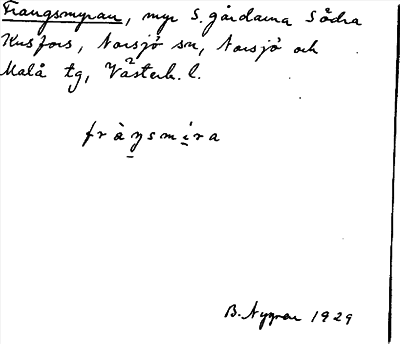 Frangsmyran, myr S. gårdarna Södra
Kusfors, Norsjö sn, Norsjö och
Malå tg, Västerb. l.
fràŋsmira
B. Nygren 1929